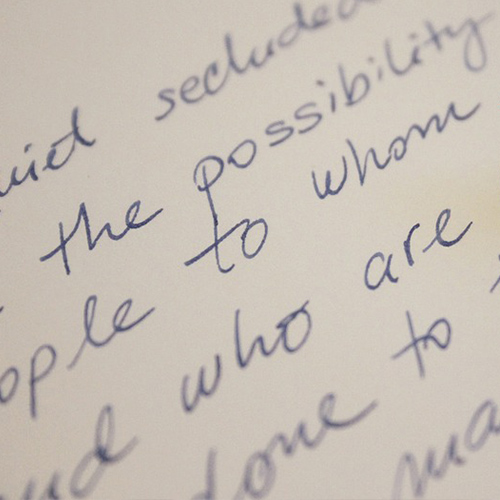 uiet secluded
the possibility
ople to whom
nd who are
done to
ma